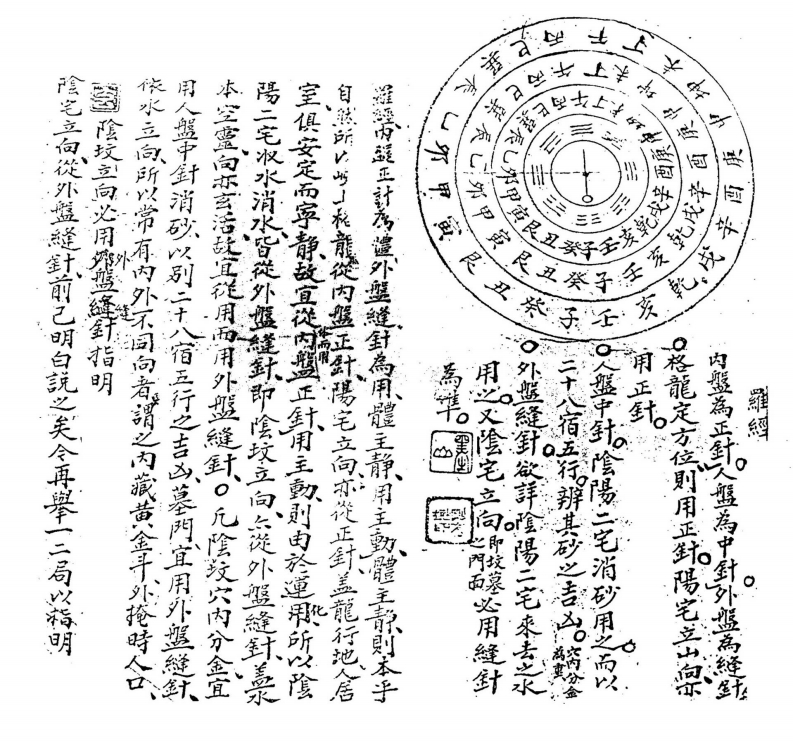 子癸丑艮寅甲卯乙辰巽巳丙午丁未坤申庚酉辛戌乾亥壬
子癸丑艮寅甲卯乙辰巽巳丙午丁未坤申庚酉辛戌乾亥壬
子癸丑艮寅甲卯乙辰巽巳丙午丁未坤申庚酉辛戌乾亥壬
羅經
內盤為正針。人盤為中針。外盤為縫針
。格龍定方位。則用正針。陽宅立山向亦
用正針。
。人盤中針。陰陽二宅消砂用之。而以
二十八宿五行。辨其砂之吉凶。穴內分金為重
。外盤縫針。欲詳陰陽二宅來去之水
用之。又陰宅立向。即坟墓之門面必用縫針
為準。
羅經內盤正針為體、外盤縫針為用、體主静、用主動、體主静、則本乎
自然所以格龍從內盤正針、陽宅立向亦從正針、盖龍行地、人居
室、俱安定而寧静、故宜從內盤正針、用主動、則由於運用化、所以陰
陽二宅收水消水、皆從外盤縫針、即陰坟立向、亦從外盤縫針、盖水
本空靈、向亦玄活、故宜從用而用外盤縫針、。凡陰坟穴內分金宜
用人盤中針、消砂、以别二十八宿五行之吉凶、墓門宜用外盤縫針、
依水立向、所以常有內外不同向者、謂之內藏黄金斗、外掩時人口、
陰坟立向必用外盤縫針指明
陰宅立向、從外盤縫針、前已明白説之矣、今再舉一二局以指明